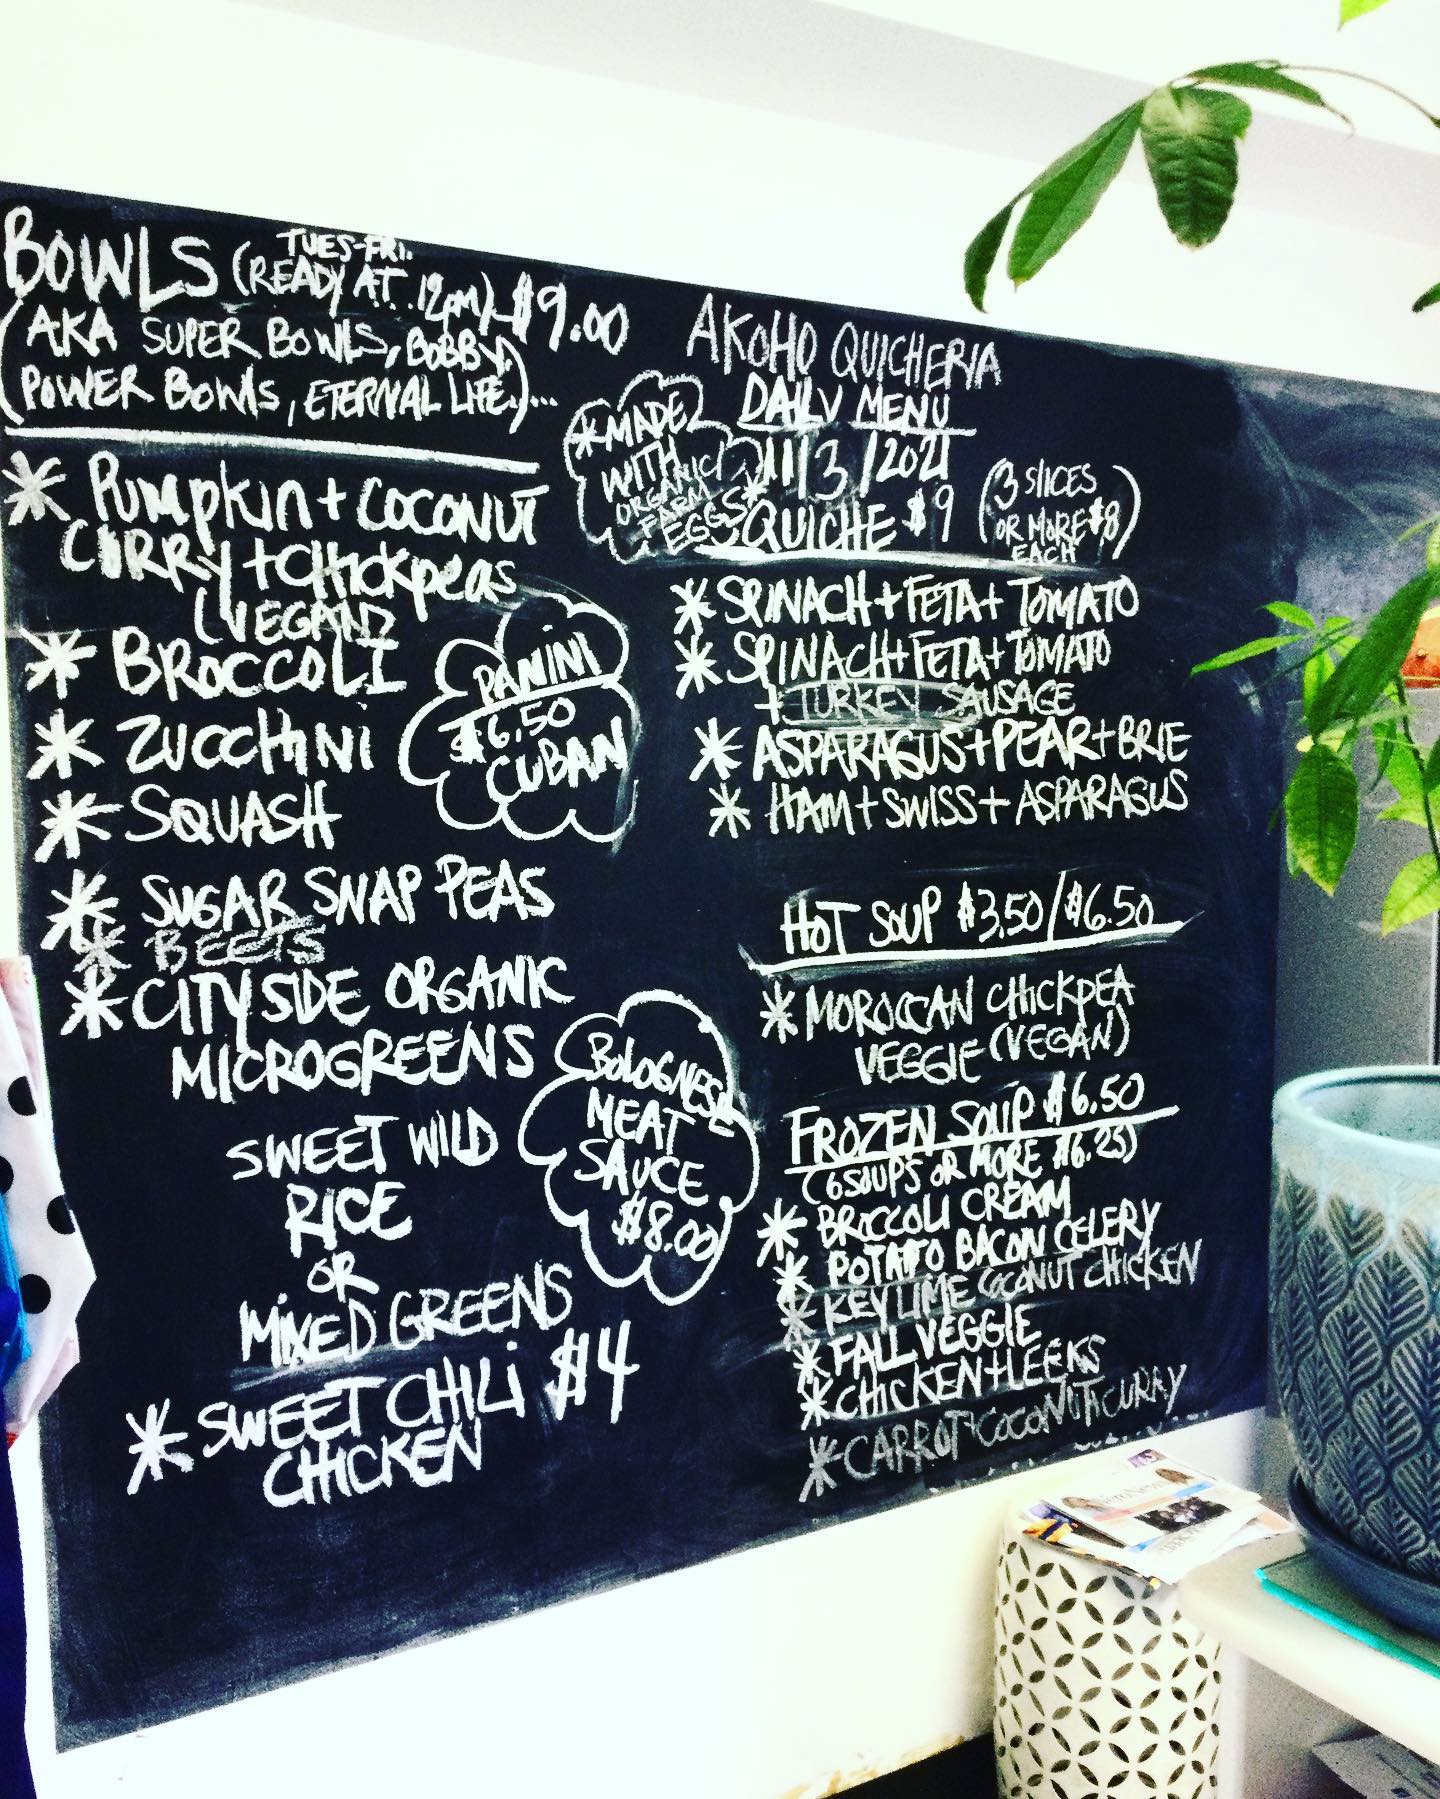 BOWLS (TUES-FRI.
READY AT 12pm) $9.00
(AKA SUPER BOWLS, BOBBY,
POWER BOWLS, ETERNAL LIFE.)...
* PUMPKIN + COCONUT
CURRY + CHICKPEAS
(VEGAN)
* BROCCOLI
* ZUCCHINI
* SQUASH
* SUGAR SNAP PEAS
* BEETS
* CITYSIDE ORGANIC
MICROGREENS
SWEET WILD
RICE
OR
MIXED GREENS
* SWEET CHILI $4
CHICKEN
PANINI
$6.50
CUBAN
BOLOGNESE
MEAT
SAUCE
$8.00
AKOHO QUICHERIA
DAILY MENU
11/3/2021
*MADE
WITH
ORGANIC
FARM
EGGS*
QUICHE $9 (3 SLICES
OR MORE $8
EACH)
* SPINACH + FETA + TOMATO
* SPINACH + FETA + TOMATO
+ TURKEY SAUSAGE
* ASPARAGUS + PEAR + BRIE
* HAM + SWISS + ASPARAGUS
HOT SOUP $3.50/$6.50
* MOROCCAN CHICKPEA
VEGGIE (VEGAN)
FROZEN SOUP $6.50
(6 SOUPS OR MORE $6.25)
* BROCCOLI CREAM
* POTATO BACON CELERY
* KEY LIME COCONUT CHICKEN
* FALL VEGGIE
* CHICKEN + LEEKS
* CARROT + COCONUT + CURRY